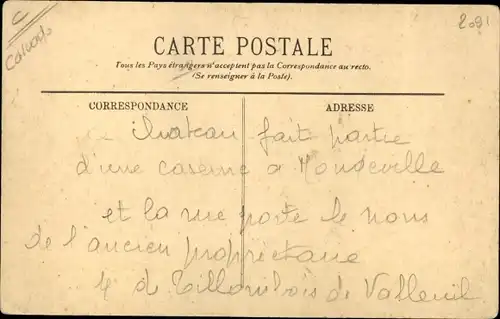 C
Calvados
2091
CARTE POSTALE
Tous les Pays étrangers n'acceptent pas la Correspondance au recto.
(Se renseigner à la Poste).
CORRESPONDANCE
ADRESSE
Chateau fait partie
d'une caserne a Mondeville
et la rue porte le nom
de l'ancien propriétaire
de Tillombois de Valleuil